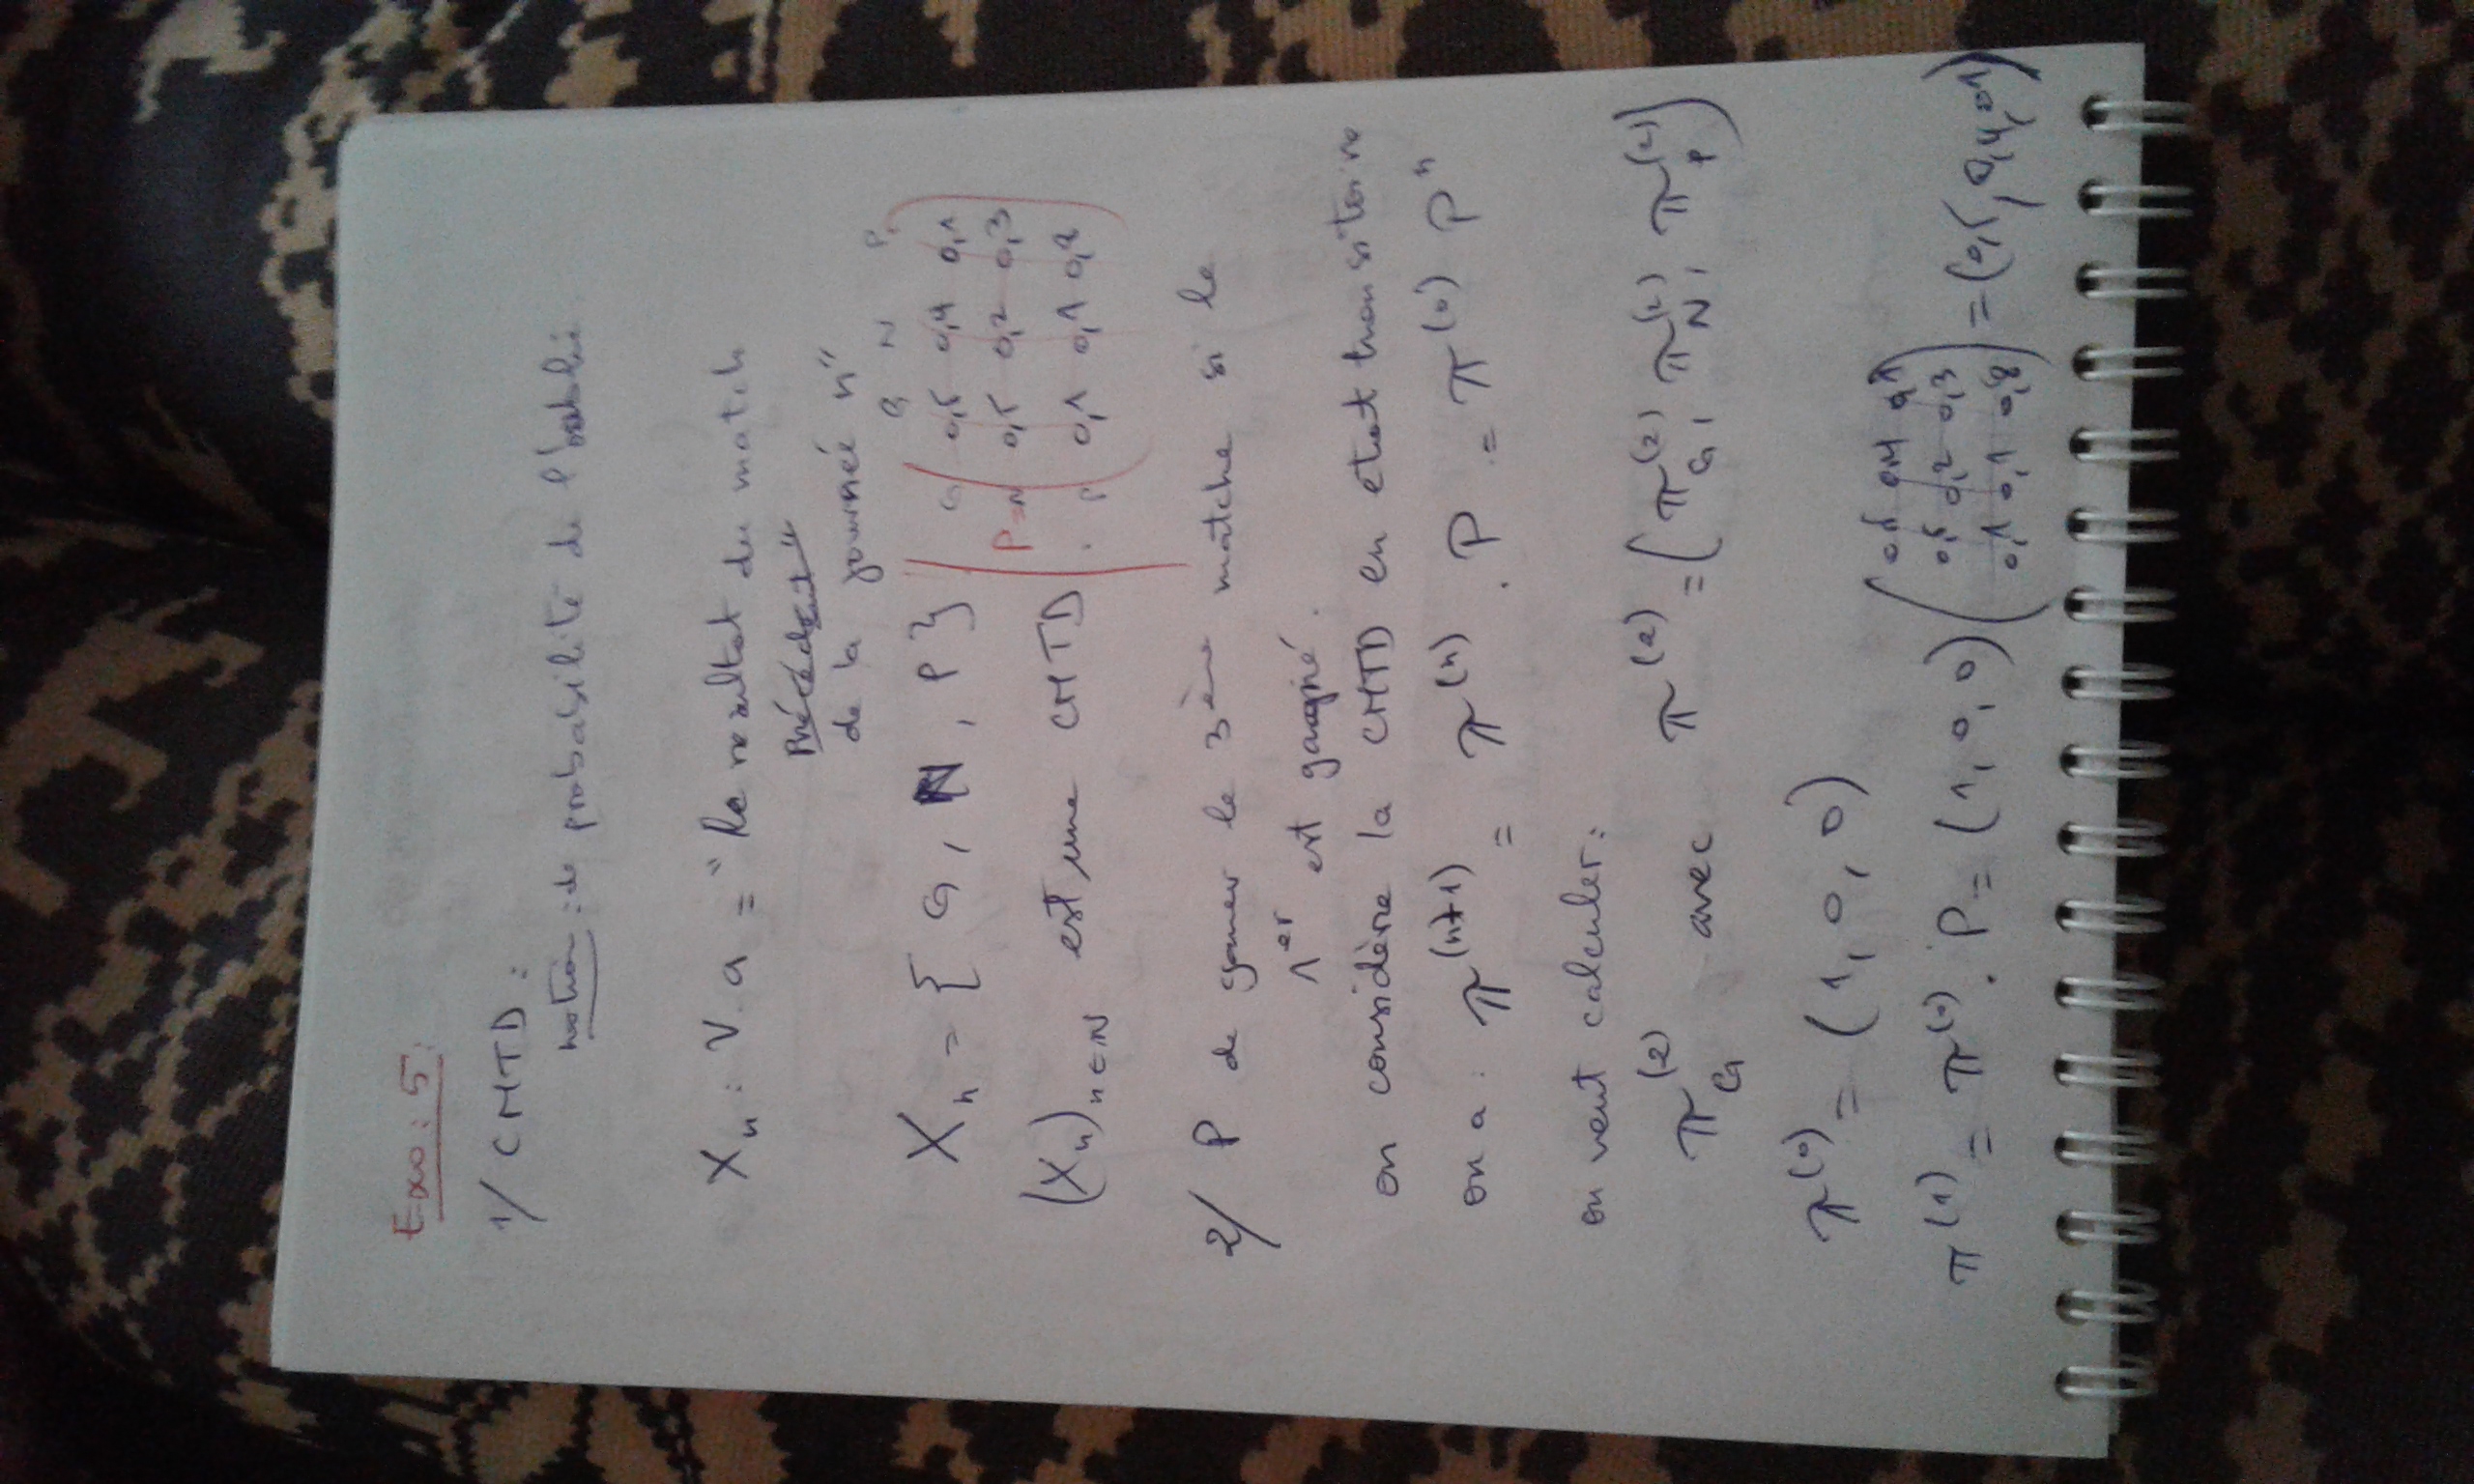 Exo : 5 :
1/ CMTD :
notion : de probabilité de l'oublie
Xn : V.a = "le resultat du match
Précédent"
de la journée n"
G N P
Xn = { G, N, P } G 0,5 0,4 0,1
P = N 0,5 0,2 0,3
(Xn)n∈N est une CMTD P 0,1 0,1 0,8
2/ P de gamer le 3ème matche si le
1er est gangné.
on considère la CMTD en etat transitoire
on a : π(n+1) = π(n) . P = π(0) Pn
on veut calculer :
πG(2) avec π(2) = (πG(2), πN(2), πP(2))
π(0) = (1, 0, 0)
π(1) = π(0) . P = (1, 0, 0) (0,5 0,4 0,1
0,5 0,2 0,3
0,1 0,1 0,8) = (0,5, 0,4, 0,1)